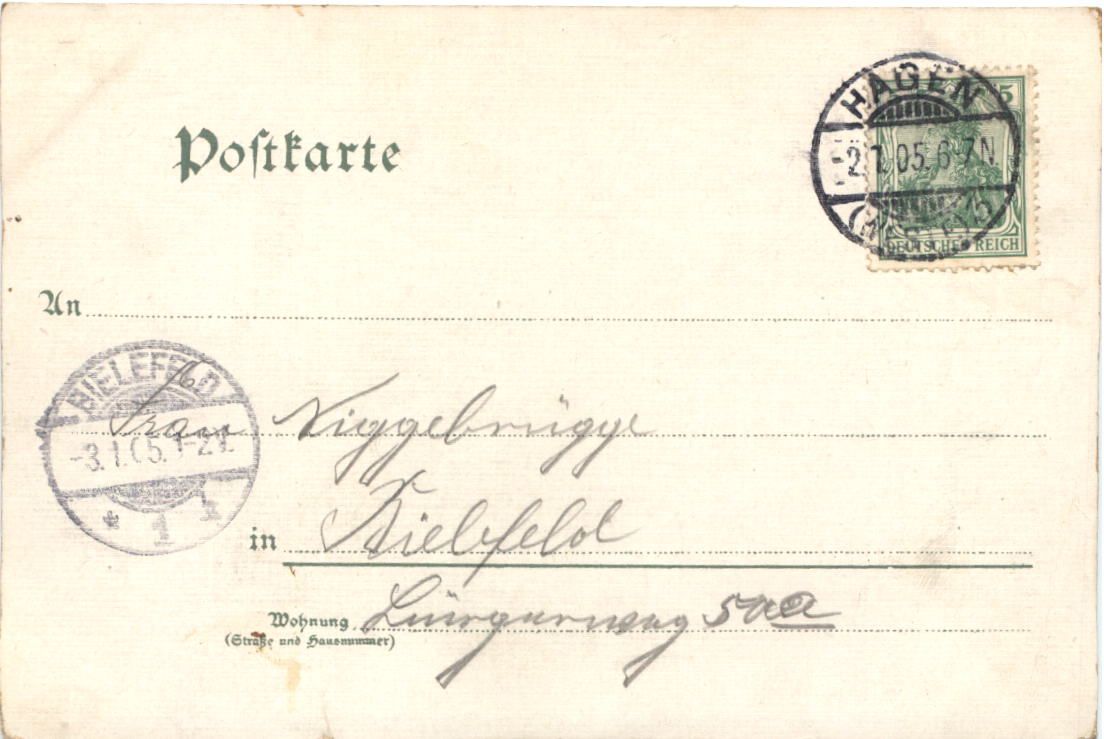 Postkarte
HAGEN
5
2.1.05.6-7N.
(WESTF.)
DEUTSCHES REICH
An
BIELEFELD
Frau Niggebrügge
-3.1.05.1-2V.
* 1
in Bielefeld
Wohnung Bürgerweg
(Straße und Hausnummer)